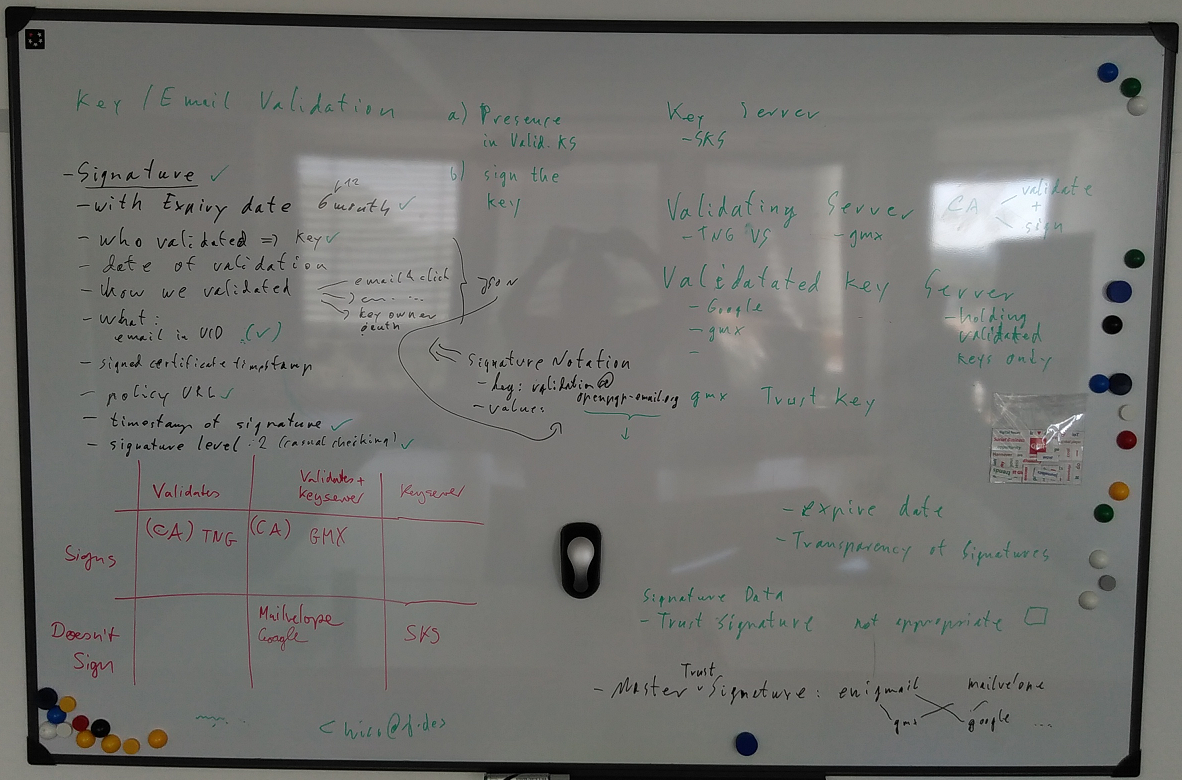 Key / Email Validation
a) Presence
in Valid. KS
b) sign the
key
- Signature ✓
- with Expiry date 6 month ✓
12
- who validated => key ✓
- date of validation
- how we validated
email & click
key owner
- What:
email in UID (✓)
- signed certificate timestamp
- policy URL ✓
- timestamp of signature ✓
- signature level: 2 (casual checking) ✓
JSON
Signature Notation
- key: validation@
openpgp-email.org
- value:
Key Server
- SKS
Validating Server
- TNG VS - gmx
CA
validate
+
sign
Validatated Key Server
- Google
- gmx
-
- holding
validated
keys only
gmx Trust Key
- expire date
- Transparency of Signatures
Signature Data
- Trust Signature not appropriate
- Master Trust Signature: enigmail
mailvelope
gmx
google ...
Validates
Validates +
Keyserver
Keyserver
Signs
(CA) TNG
(CA) GMX
Doesn't
Sign
Mailvelope
Google
SKS